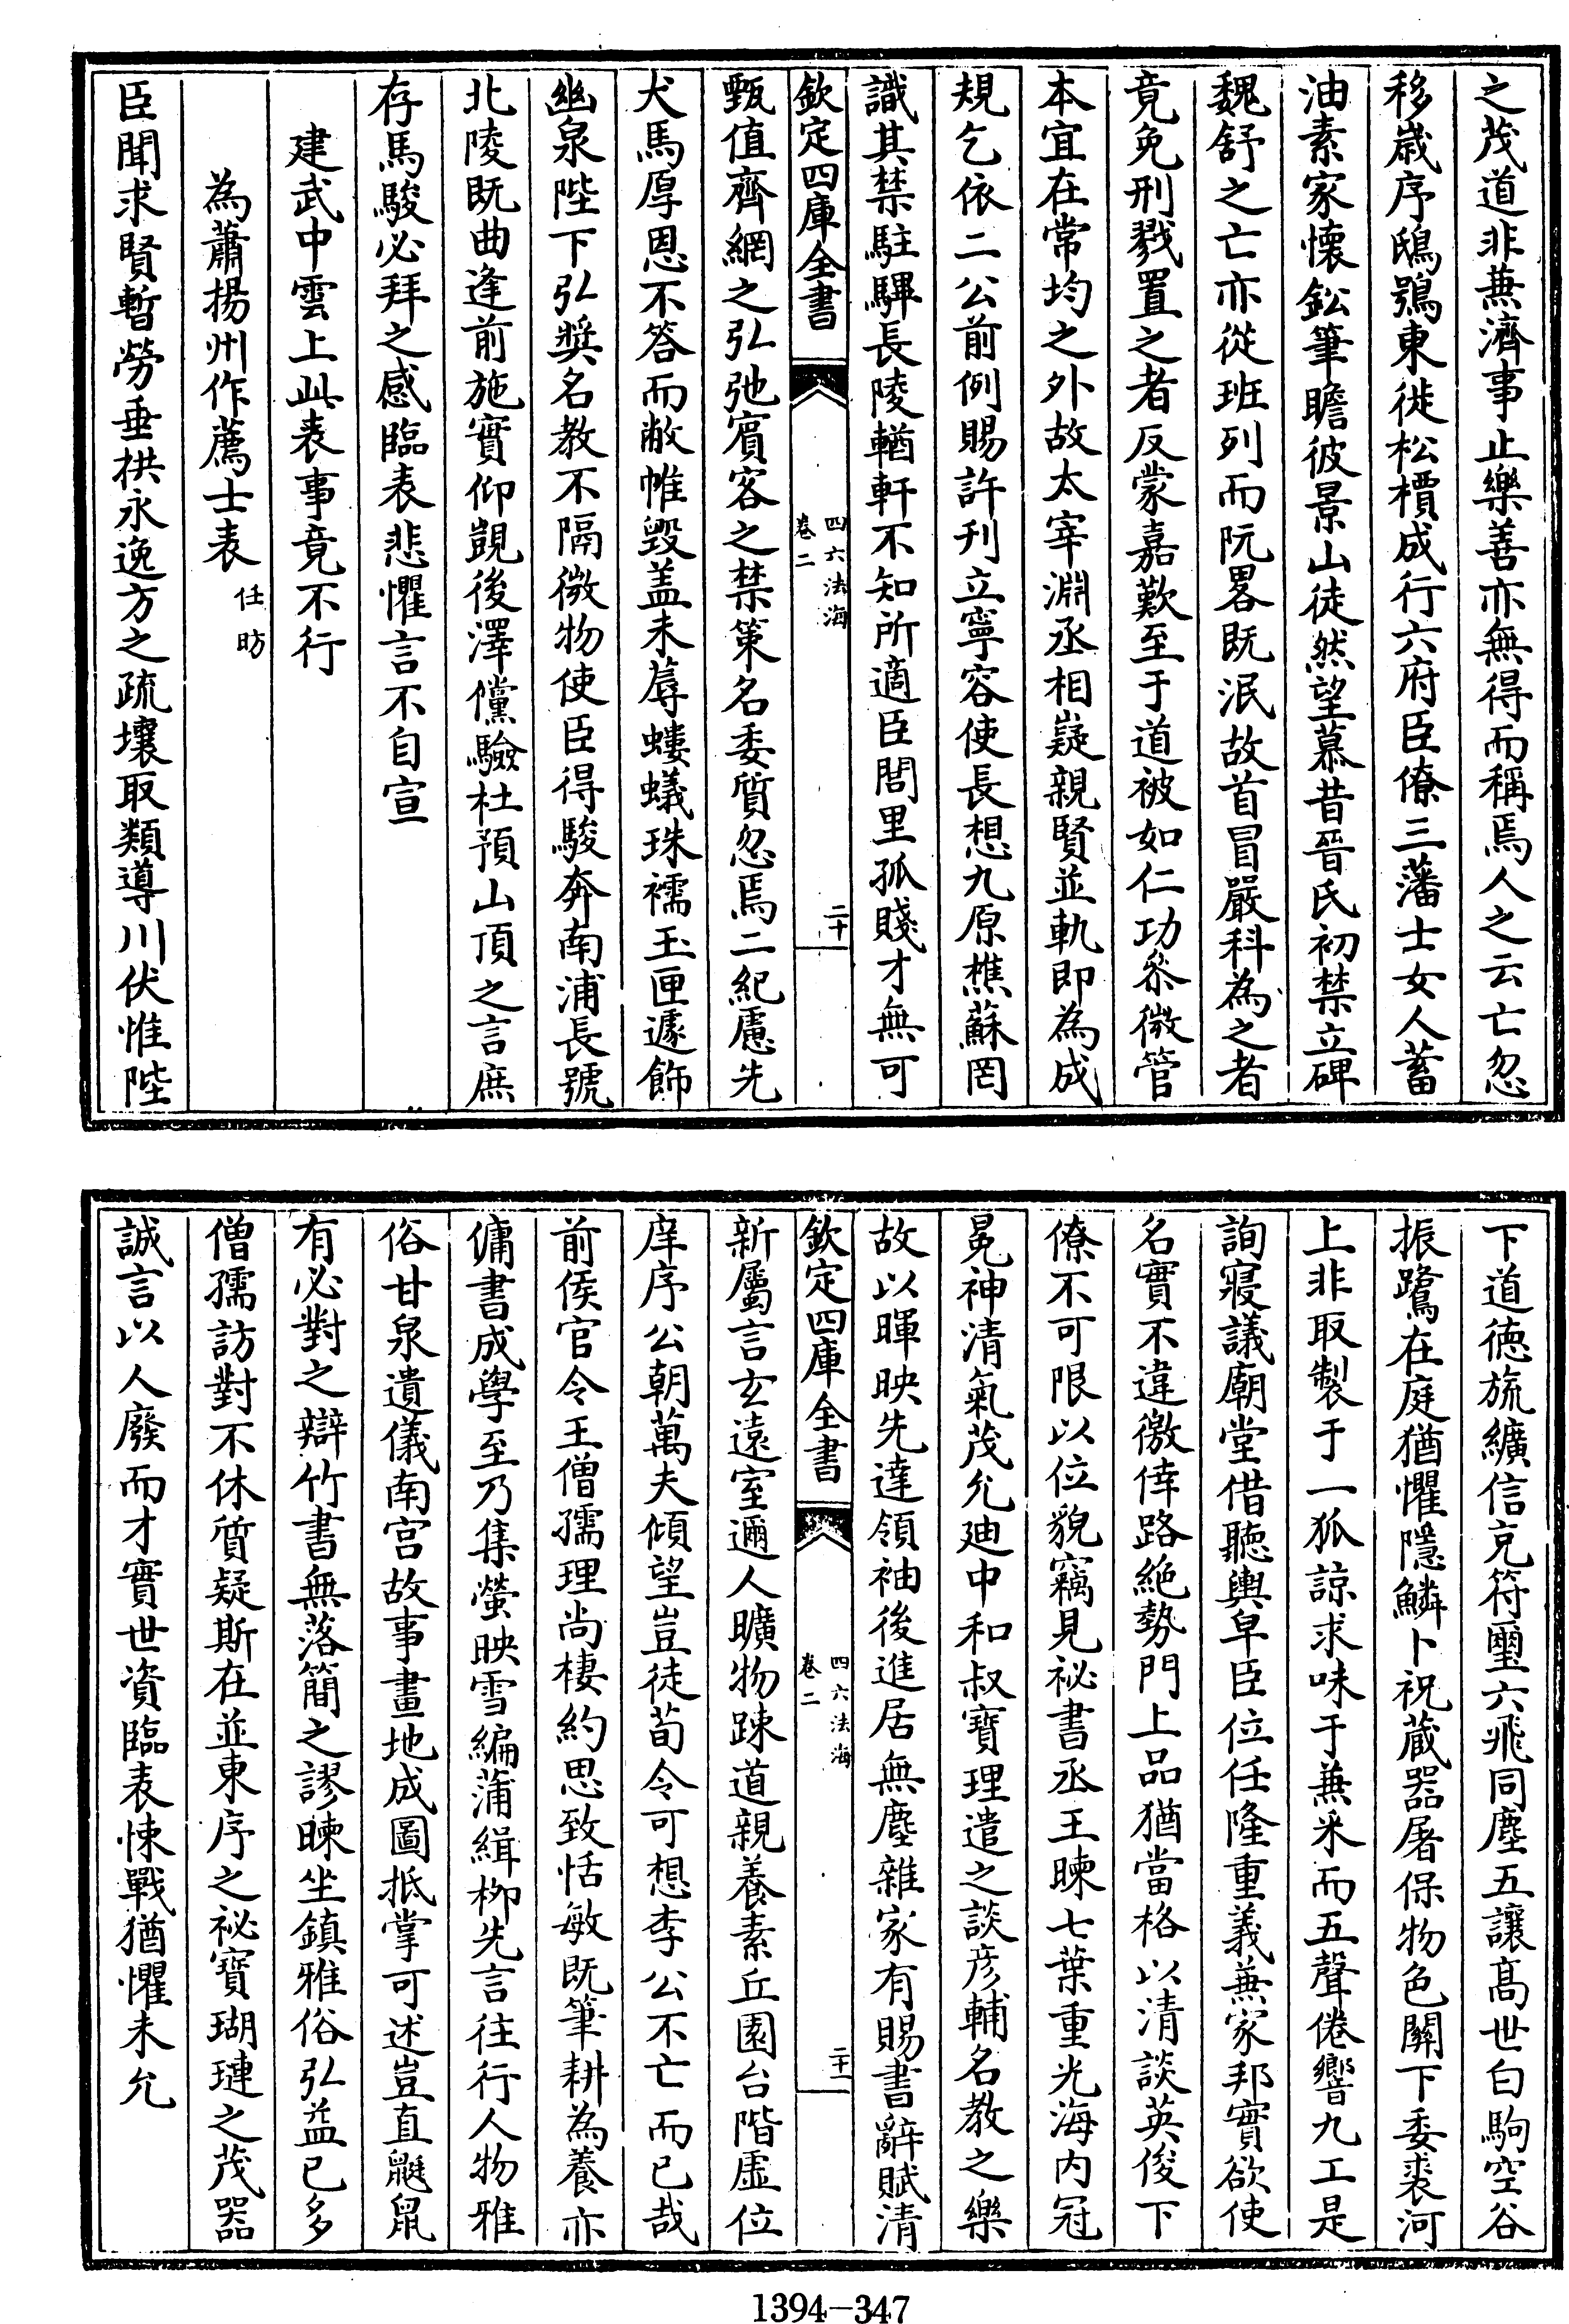 之茂道非蕪濟事止樂善亦無得而稱焉人之云亡忽
移歲序鴟鴞東徙松檟成行六府臣僚三藩士女人蓄
油素家懷鉛筆瞻彼景山徒然望慕昔晉氏初禁立碑
魏舒之亡亦從班列而阮畧既泯故首冒嚴科為之者
竟免刑戮置之者反蒙嘉歎至于道被如仁功叅微管
本宜在常均之外故太宰淵丞相嶷親賢並軌即為成
規乞依二公前例賜許刋立寧容使長想九原樵蘇罔
識其禁駐驆長陵輶軒不知所適臣閭里孤賤才無可
欽定四庫全書
四六法海
卷二
二十
甄值齊網之弘弛賓客之禁策名委質忽焉二紀慮先
犬馬厚恩不答而敝帷毀盖未蓐螻蟻珠襦玉匣遽飾
幽泉陛下弘奬名教不隔微物使臣得駿奔南浦長號
北陵既曲逢前施實仰覬後澤儻驗杜預山頂之言庶
存馬駿必拜之感臨表悲懼言不自宣
建武中雲上此表事竟不行
為蕭揚州作薦士表 任昉
臣聞求賢暫勞垂拱永逸方之疏壤取類導川伏惟陛
下道徳旒纊信充符璽六飛同塵五讓髙世白駒空谷
振鷺在庭猶懼隱鱗卜祝蔵器屠保物色關下委裘河
上非取製于一狐諒求味于蕪采而五聲倦響九工是
詢寢議廟堂借聽輿皁臣位任隆重義蕪家邦實欲使
名實不違徼倖路絶勢門上品猶當格以清談英俊下
僚不可限以位貌竊見祕書丞王暕七葉重光海内冠
冕神清氣茂允廸中和叔寳理遣之談彦輔名教之樂
故以暉映先達領袖後進居無塵雜家有賜書辭賦清
欽定四庫全書
四六法海
卷二
二十一
新屬言玄遠室邇人曠物踈道親養素丘園台階虚位
庠序公朝萬夫傾望豈徒荀令可想李公不亡而已哉
前侯官令王僧孺理尚棲約思致恬敏既筆耕為養亦
傭書成學至乃集螢映雪編蒲緝栁先言往行人物雅
俗甘泉遺儀南宫故事畫地成圖抵掌可述豈直鼮鼠
有必對之辯竹書無落簡之謬暕坐鎮雅俗弘益已多
僧孺訪對不休質疑斯在並東序之祕寳瑚璉之茂器
誠言以人廢而才實世資臨表悚戰猶懼未允
1394-347